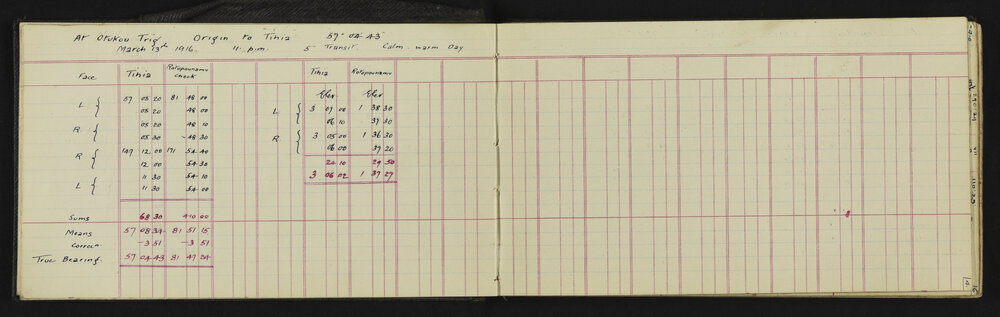 At Otukou Trig Origin to Tihia 57° 04 43
March 13th 1916. 4 p.m. 5" Transit. Calm warm Day
Face Tihia Rotopounamu check Tihia Rotopounamu
Elev Elev
L { 57 05 20 81 48 00
05 20 48 00
R { 05 20 48 10
05 30 48 30
R { 147 12 00 171 54 40
12 00 54 30
L { 11 30 54 10
11 30 54 00
L { 3 07 00 1 38 30
06 10 37 30
R { 3 05 00 1 36 30
06 00 37 20
24 10 29 50
3 06 02 1 37 27
Sums 68 30 40 00
Means 57 08 34 81 51 15
Corrcn. -3 51 -3 51
True Bearing. 57 04 43 81 47 24